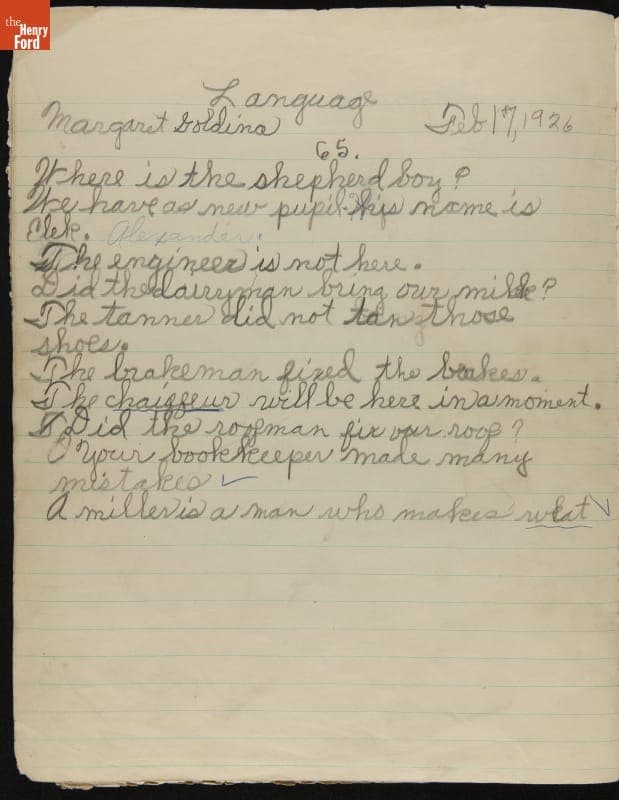 the
Henry
Ford
Language
Margaret Goldina Feb 17, 1926
65.
Where is the shepherd boy?
We have as new pupil his name is
Elek. Alexander.
The engineer is not here.
Did the dairyman bring our milk?
The tanner did not tan those
shoes.
The brakeman fixed the brakes.
The chaiffeur will be here in a moment.
Did the roofman fix our roof?
Your bookkeeper made many
mistakes
A miller is a man who makes weat